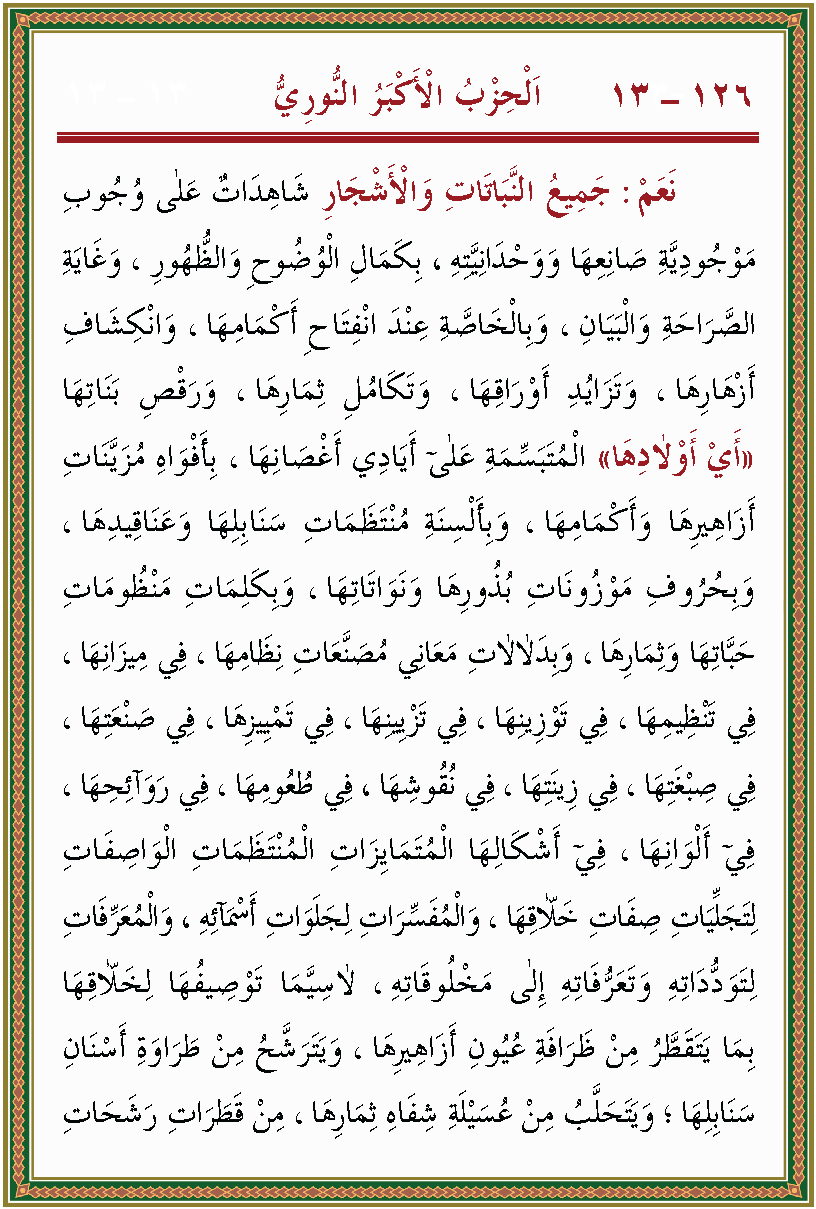 ١٢٦ – ١٣ اَلْحِزْبُ الْأَكْبَرُ النُّورِيُّ ١٣ – ١٣
نَعَمْ : جَمِيعُ النَّبَاتَاتِ وَالْأَشْجَارِ شَاهِدَاتٌ عَلٰى وُجُوبِ
مَوْجُودِيَّةِ صَانِعِهَا وَوَحْدَانِيَّتِهِ ، بِكَمَالِ الْوُضُوحِ وَالظُّهُورِ ، وَغَايَةِ
الصَّرَاحَةِ وَالْبَيَانِ ، وَبِالْخَاصَّةِ عِنْدَ انْفِتَاحِ أَكْمَامِهَا ، وَانْكِشَافِ
أَزْهَارِهَا ، وَتَزَايُدِ أَوْرَاقِهَا ، وَتَكَامُلِ ثِمَارِهَا ، وَرَقْصِ بَنَاتِهَا
«أَيْ أَوْلَادِهَا» الْمُتَبَسِّمَةِ عَلٰىٓ أَيَادِي أَغْصَانِهَا ، بِأَفْوَاهِ مُزَيَّنَاتِ
أَزَاهِيرِهَا وَأَكْمَامِهَا ، وَبِأَلْسِنَةِ مُنْتَظَمَاتِ سَنَابِلِهَا وَعَنَاقِيدِهَا ،
وَبِحُرُوفِ مَوْزُونَاتِ بُذُورِهَا وَنَوَاتَاتِهَا ، وَبِكَلِمَاتِ مَنْظُومَاتِ
حَبَّاتِهَا وَثِمَارِهَا ، وَبِدَلَالَاتِ مَعَانِي مُصَنَّعَاتِ نِظَامِهَا ، فِي مِيزَانِهَا ،
فِي تَنْظِيمِهَا ، فِي تَوْزِينِهَا ، فِي تَزْيِينِهَا ، فِي تَمْيِيزِهَا ، فِي صَنْعَتِهَا ،
فِي صِبْغَتِهَا ، فِي زِينَتِهَا ، فِي نُقُوشِهَا ، فِي طُعُومِهَا ، فِي رَوَآئِحِهَا ،
فِيٓ أَلْوَانِهَا ، فِيٓ أَشْكَالِهَا الْمُتَمَايِزَاتِ الْمُنْتَظَمَاتِ الْوَاصِفَاتِ
لِتَجَلِّيَاتِ صِفَاتِ خَلَّاقِهَا ، وَالْمُفَسِّرَاتِ لِجَلَوَاتِ أَسْمَآئِهِ ، وَالْمُعَرِّفَاتِ
لِتَوَدُّدَاتِهِ وَتَعَرُّفَاتِهِ إِلٰى مَخْلُوقَاتِهِ ، لَاسِيَّمَا تَوْصِيفُهَا لِخَلَّاقِهَا
بِمَا يَتَقَطَّرُ مِنْ ظَرَافَةِ عُيُونِ أَزَاهِيرِهَا ، وَيَتَرَشَّحُ مِنْ طَرَاوَةِ أَسْنَانِ
سَنَابِلِهَا ؛ وَيَتَحَلَّبُ مِنْ عُسَيْلَةِ شِفَاهِ ثِمَارِهَا ، مِنْ قَطَرَاتِ رَشَحَاتِ